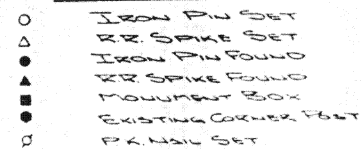 IRON PIN SET
R.R. SPIKE SET
IRON PIN FOUND
R.R. SPIKE FOUND
MONUMENT BOX
EXISTING CORNER POST
P.K. NAIL SET